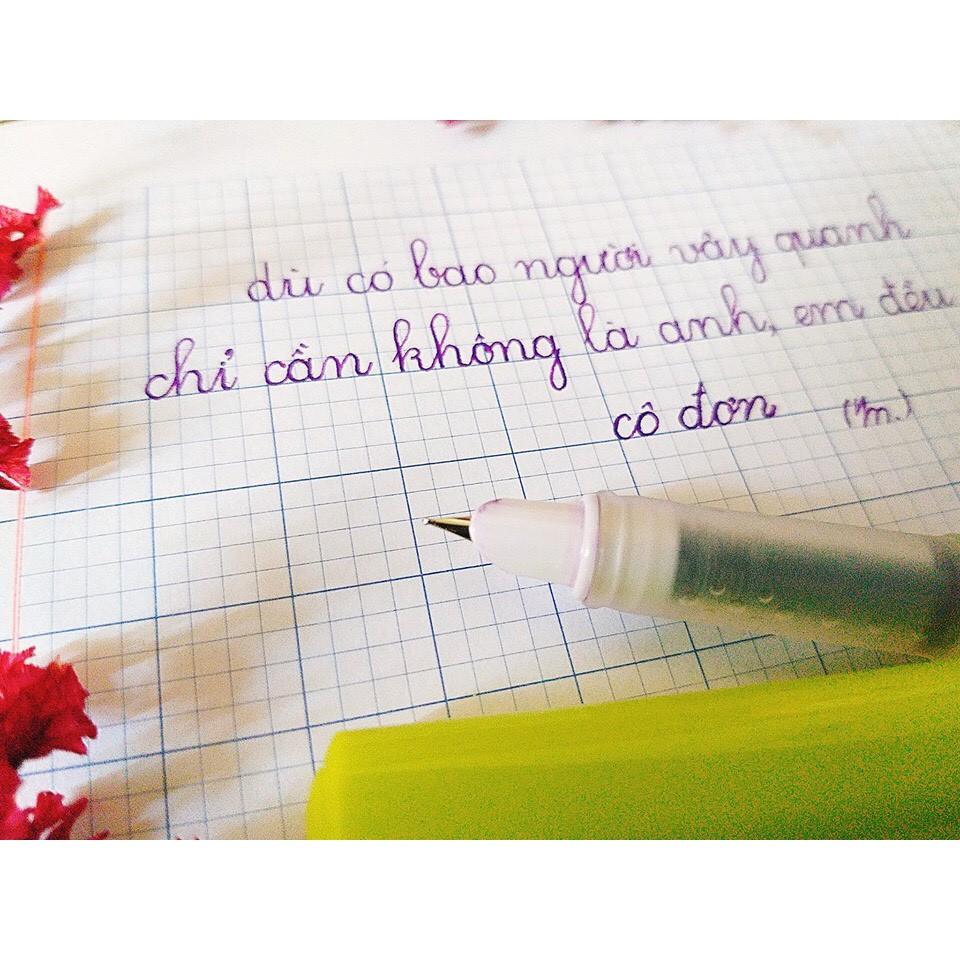 dù có bao người vây quanh
chỉ cần không là anh, em đều
cô đơn (m.)